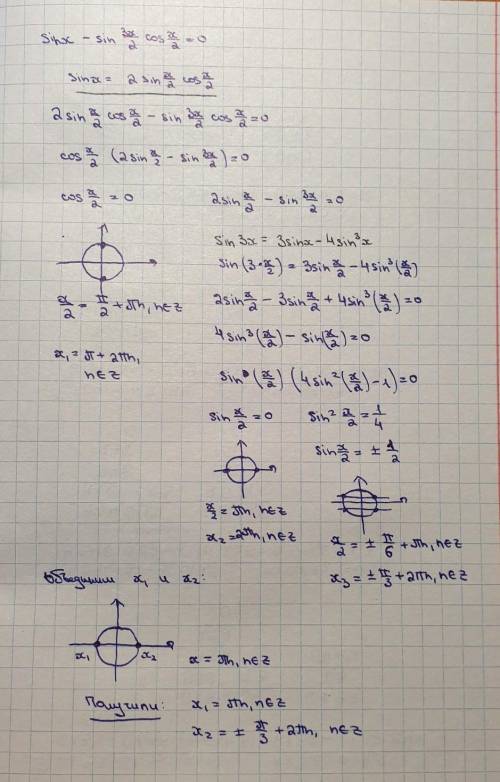 sin x − sin 3x/2 cos x/2 = 0
sin x = 2 sin x/2 cos x/2
2 sin x/2 cos x/2 − sin 3x/2 cos x/2 = 0
cos x/2 (2 sin x/2 − sin 3x/2) = 0
cos x/2 = 0
x/2 = π/2 + πn, n∈Z
x₁ = π + 2πn,
n∈Z
2 sin x/2 − sin 3x/2 = 0
sin 3x = 3 sin x − 4 sin³x
sin(3·x/2) = 3 sin x/2 − 4 sin³(x/2)
2 sin x/2 − 3 sin x/2 + 4 sin³(x/2) = 0
4 sin³(x/2) − sin(x/2) = 0
sin(x/2) (4 sin²(x/2) − 1) = 0
sin x/2 = 0
x/2 = πn, n∈Z
x₂ = 2πn, n∈Z
sin² x/2 = 1/4
sin x/2 = ± 1/2
x/2 = ± π/6 + πn, n∈Z
x₃ = ± π/3 + 2πn, n∈Z
Объединим x₁ и x₂:
x₁ x₂
x = πn, n∈Z
Получили: x₁ = πn, n∈Z
x₂ = ± π/3 + 2πn, n∈Z